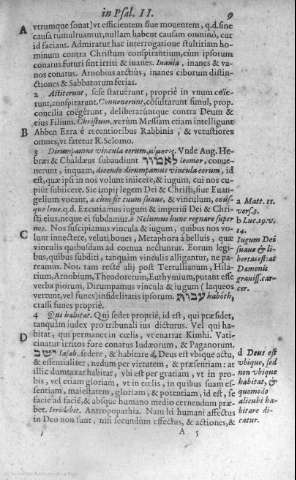 in Psal. II. 9
A vtrumque sonat) vt efficientem sue mouentem, q.d. sine
causa tumultuantur, nullam habent causam omnino, cur
id faciant. Admiratur hac interrogatione stultitiam ho-
minum contra Christum conspirantium, cùm ipsorum
conatus futuri sint irriti & inanes. Inania, inanes & va-
nos conatus. Arnobius archiuis, inanes ciborum distin-
ctiones & Sabbatorum ferias.
2 Astiterunt, sese statuerunt, propriè in vnum conse-
runt, conspirarunt. Conuenerunt, consultarunt simul, prop.
concilia coëgerunt, deliberaruntque contra Deum &
B eius Filium. Christum, verum Messiam etiam intelligunt
Abben Ezra è recentioribus Rabbinis, & vetustiores
omnes, vt fatetur R. Selomo.
3 Dirumpamus vincula eorum, Vnde Aug. He-
bræi & Chaldæus subaudiunt לאמור leemor, conue-
nerunt, inquam, dicendo dirumpamus vincula eorum, id
est, quæ ipsi in nos volunt iniicere, & iugum, cui nos cu-
piunt subiicere. Sic impij legem Dei & Christi, siue Euan-
gelium vocant, a cùm sit iugum suaue, & vinculum,
leue, q.d. Excutiamus iugum & imperium Dei & Chri-
sti eius, neque ei subdamur: b Nolumus hunc regnare super
C nos. Nos suscipiamus vincula & iugum, quibus nos vo-
lunt innectere, veluti boues, Metaphora à belluis, quæ
vinculis quibusdam ad currus nectuntur. Eorum legi-
bus, quibus subdit, tanquam vinculis alligantur, ne pa-
reamus. Non tam rectè alij post Tertullianum, Hila-
rium, Arnobium, Theodoretum, Euthymium, putant esse
verba piorum, Dirumpamus vincula & iugum (laqueos
vertunt, vel funes) infidelitatis ipsorum. עבות haboth,
crassi funes propriè.
4 Qui habitat. Qui sedet propriè, id est, qui præsidet,
tanquam iudex pro tribunali ius dicturus. Vel qui ha-
D bitat, qui permanet in cœlis, vt enarrat Kimhi. Vati-
cinatur irritos fore conatus Iudæorum, & Paganorum.
ישב iasab, sedere, & habitare d, Deus est vbique actu,
& essentialiter, nedum per virtutem, & præsentiam: at
illic dumtaxat habitat, vbi est per gratiam, vt in pro-
bis, vel etiam gloriam, vt in cœlis, in quibus suam es-
sentiam, maiestatem, gloriam, & potentiam, id est, se
facie ad faciè, & absque humano medio cernendum præ-
bet. Irridebit. Antropopathia. Nam hi humani affectus
in Deo non sunt, nisi secundùm effectus, & actiones, &
A 5
a Matt. 11.
vers. 3.
b Luc. 19. v.
14.
Iugum Dei
suaue & li-
bertas est: at
Dæmonis
grauiss. car-
cer.
d Deus est
vbique, sed
non vbique
habitat, &
quomodo
alicubi ha-
bitare di-
catur.